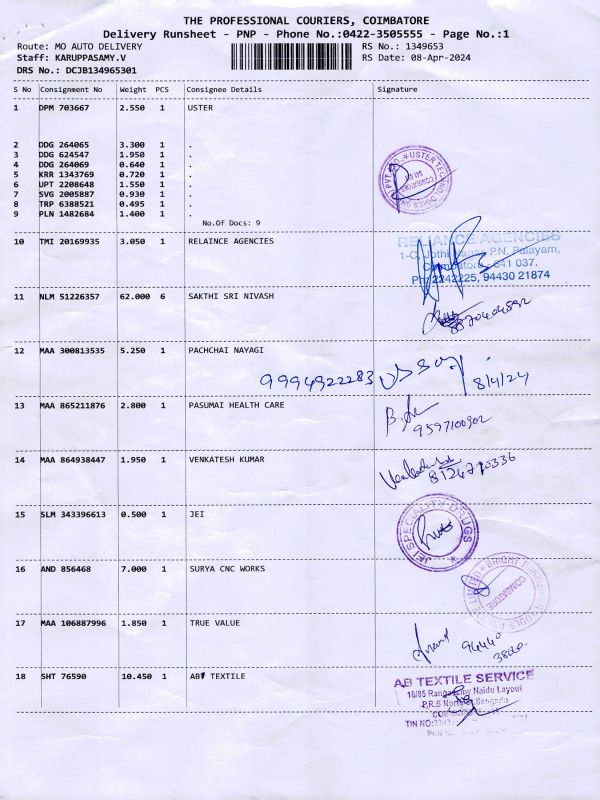 THE PROFESSIONAL COURIERS, COIMBATORE
Delivery Runsheet - PNP - Phone No.:0422-3505555 - Page No.:1
Route: MO AUTO DELIVERY RS No.: 1349653
Staff: KARUPPASAMY.V RS Date: 08-Apr-2024
DRS No.: DCJB134965301
S No Consignment No Weight PCS Consignee Details Signature
1 DPM 703667 2.550 1 USTER
2 DDG 264065 3.300 1 .
3 DDG 624547 1.950 1 .
4 DDG 264069 0.640 1 .
5 KRR 1343769 0.720 1 .
6 UPT 2208648 1.550 1 .
7 SVG 2005887 0.930 1 .
8 TRP 6388521 0.495 1 .
9 PLN 1482684 1.400 1 .
No.Of Docs: 9
USTER
COIMBATORE
10 TMI 20169935 3.050 1 RELAINCE AGENCIES
RELIANCE AGENCIES
P.N. Palayam,
641 037.
Ph: 2242225, 94430 21874
11 NLM 51226357 62.000 6 SAKTHI SRI NIVASH
12 MAA 300813535 5.250 1 PACHCHAI NAYAGI
9994922283
8/4/24
13 MAA 865211876 2.800 1 PASUMAI HEALTH CARE
14 MAA 864938447 1.950 1 VENKATESH KUMAR
15 SLM 343396613 0.500 1 JEI
JEI SPECIALITY DRUGS
16 AND 856468 7.000 1 SURYA CNC WORKS
BRIGHT
COIMBATORE
17 MAA 106887996 1.850 1 TRUE VALUE
Anand 94440
18 SHT 76590 10.450 1 ABT TEXTILE
AB TEXTILE SERVICE
Naidu Layout
TIN NO: